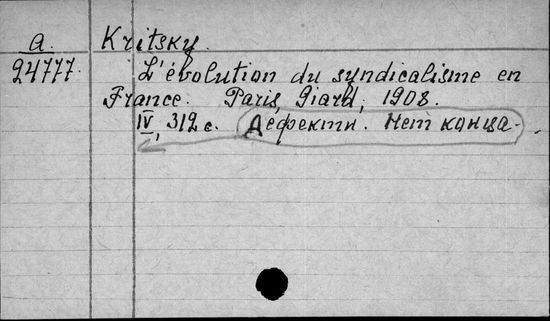 a
94777.
Kritsky.
L'évolution du syndicalisme en
France. Paris, Giard, 1908.
IV, 312 с. Дефектн. Нет конца.